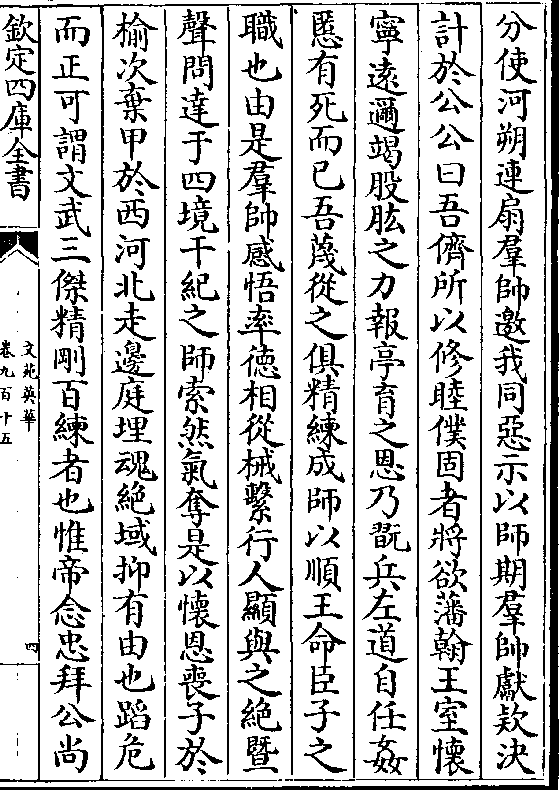 分使河朔連扇羣帥邀我同惡示以師期羣帥獻欵決
計於公公曰吾儕所以修睦僕固者將欲藩翰王室懷
寧遠邇竭股肱之力報亭育之恩乃翫兵左道自任姦
慝有死而已吾蔑從之俱精練成師以順王命臣子之
職也由是羣帥感悟率徳相從械繫行人顯與之絶暨
聲問達于四境干紀之師索然氣奪是以懷恩喪子於
榆次棄甲於西河北走邊庭埋魂絶域抑有由也蹈危
而正可謂文武三傑精剛百練者也惟帝念忠拜公尚
欽定四庫全書
文苑英華
卷九百十五
四